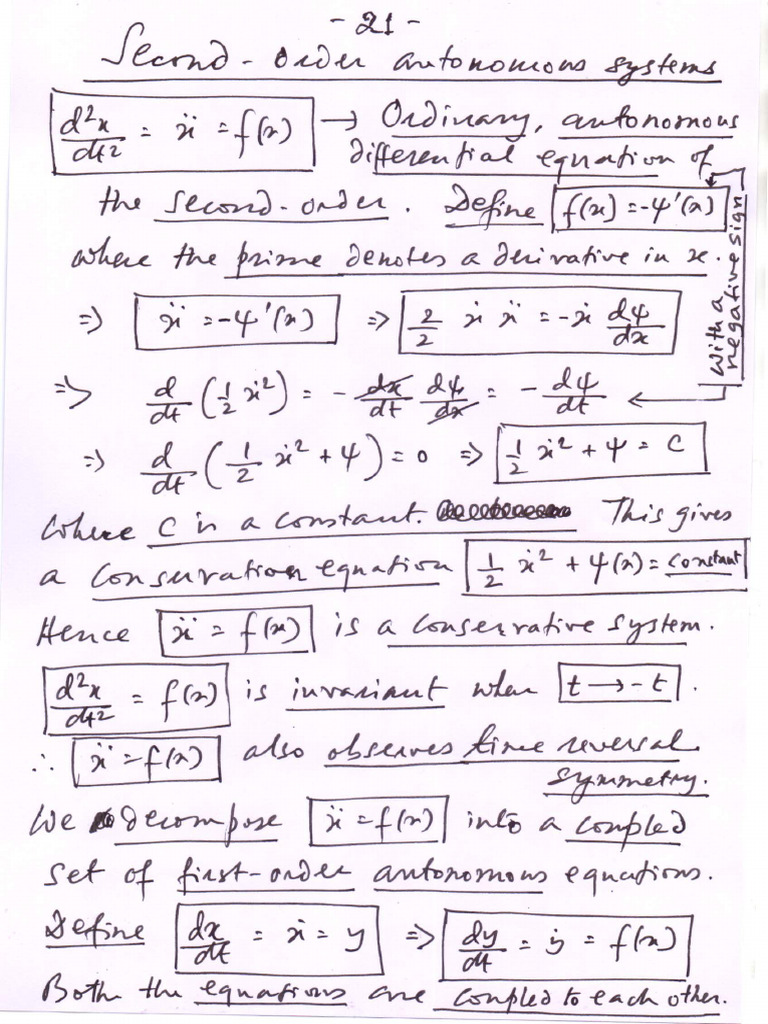 - 21 -
Second-order autonomous systems
d²x/dt² = ẍ = f(x) → Ordinary, autonomous
differential equation of
the second-order. Define f(x) = -ψ'(x)
where the prime denotes a derivative in x.
with a negative sign
⇒ ẍ = -ψ'(x) ⇒ 2/2 ẋ ẍ = -ẋ dψ/dx
⇒ d/dt (1/2 ẋ²) = - dx/dt dψ/dx = - dψ/dt
⇒ d/dt (1/2 ẋ² + ψ) = 0 ⇒ 1/2 ẋ² + ψ = C
Where C is a constant. This gives
a conservation equation 1/2 ẋ² + ψ(x) = constant
Hence ẍ = f(x) is a conservative system.
d²x/dt² = f(x) is invariant when t → -t.
∴ ẍ = f(x) also observes time reversal
symmetry.
We decompose ẍ = f(x) into a coupled
set of first-order autonomous equations.
Define dx/dt = ẋ = y ⇒ dy/dt = ẏ = f(x)
Both the equations are coupled to each other.